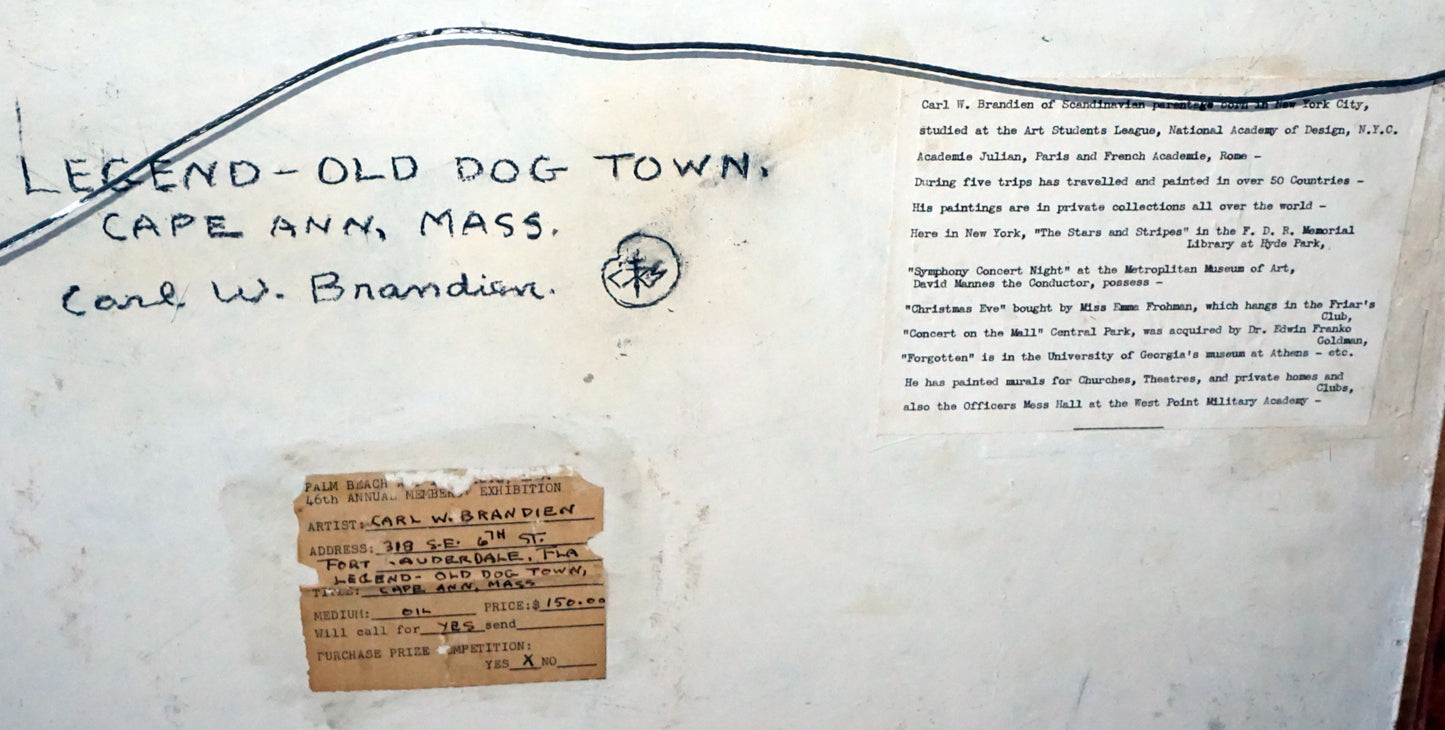 LEGEND - OLD DOG TOWN.
CAPE ANN, MASS.
Carl W. Brandien.
Carl W. Brandien of Scandinavian parentage born in New York City,
studied at the Art Students League, National Academy of Design, N.Y.C.
Academie Julian, Paris and French Academie, Rome -
During five trips has travelled and painted in over 50 Countries -
His paintings are in private collections all over the world -
Here in New York, "The Stars and Stripes" in the F. D. R. Memorial
Library at Hyde Park,
"Symphony Concert Night" at the Metroplitan Museum of Art,
David Mannes the Conductor, possess -
"Christmas Eve" bought by Miss Emma Frohman, which hangs in the Friar's
Club,
"Concert on the Mall" Central Park, was acquired by Dr. Edwin Franko
Goldman,
"Forgotten" is in the University of Georgia's museum at Athens - etc.
He has painted murals for Churches, Theatres, and private homes and
Clubs,
also the Officers Mess Hall at the West Point Military Academy -
PALM BEACH
46th ANNUAL MEMBERS EXHIBITION
ARTIST: CARL W. BRANDIEN
ADDRESS: 318 S.E. 6TH ST.
FORT LAUDERDALE, FLA
LEGEND - OLD DOG TOWN,
TITLE: CAPE ANN, MASS
MEDIUM: OIL PRICE:$ 150.00
Will call for YES send
PURCHASE PRIZE COMPETITION:
YES X NO